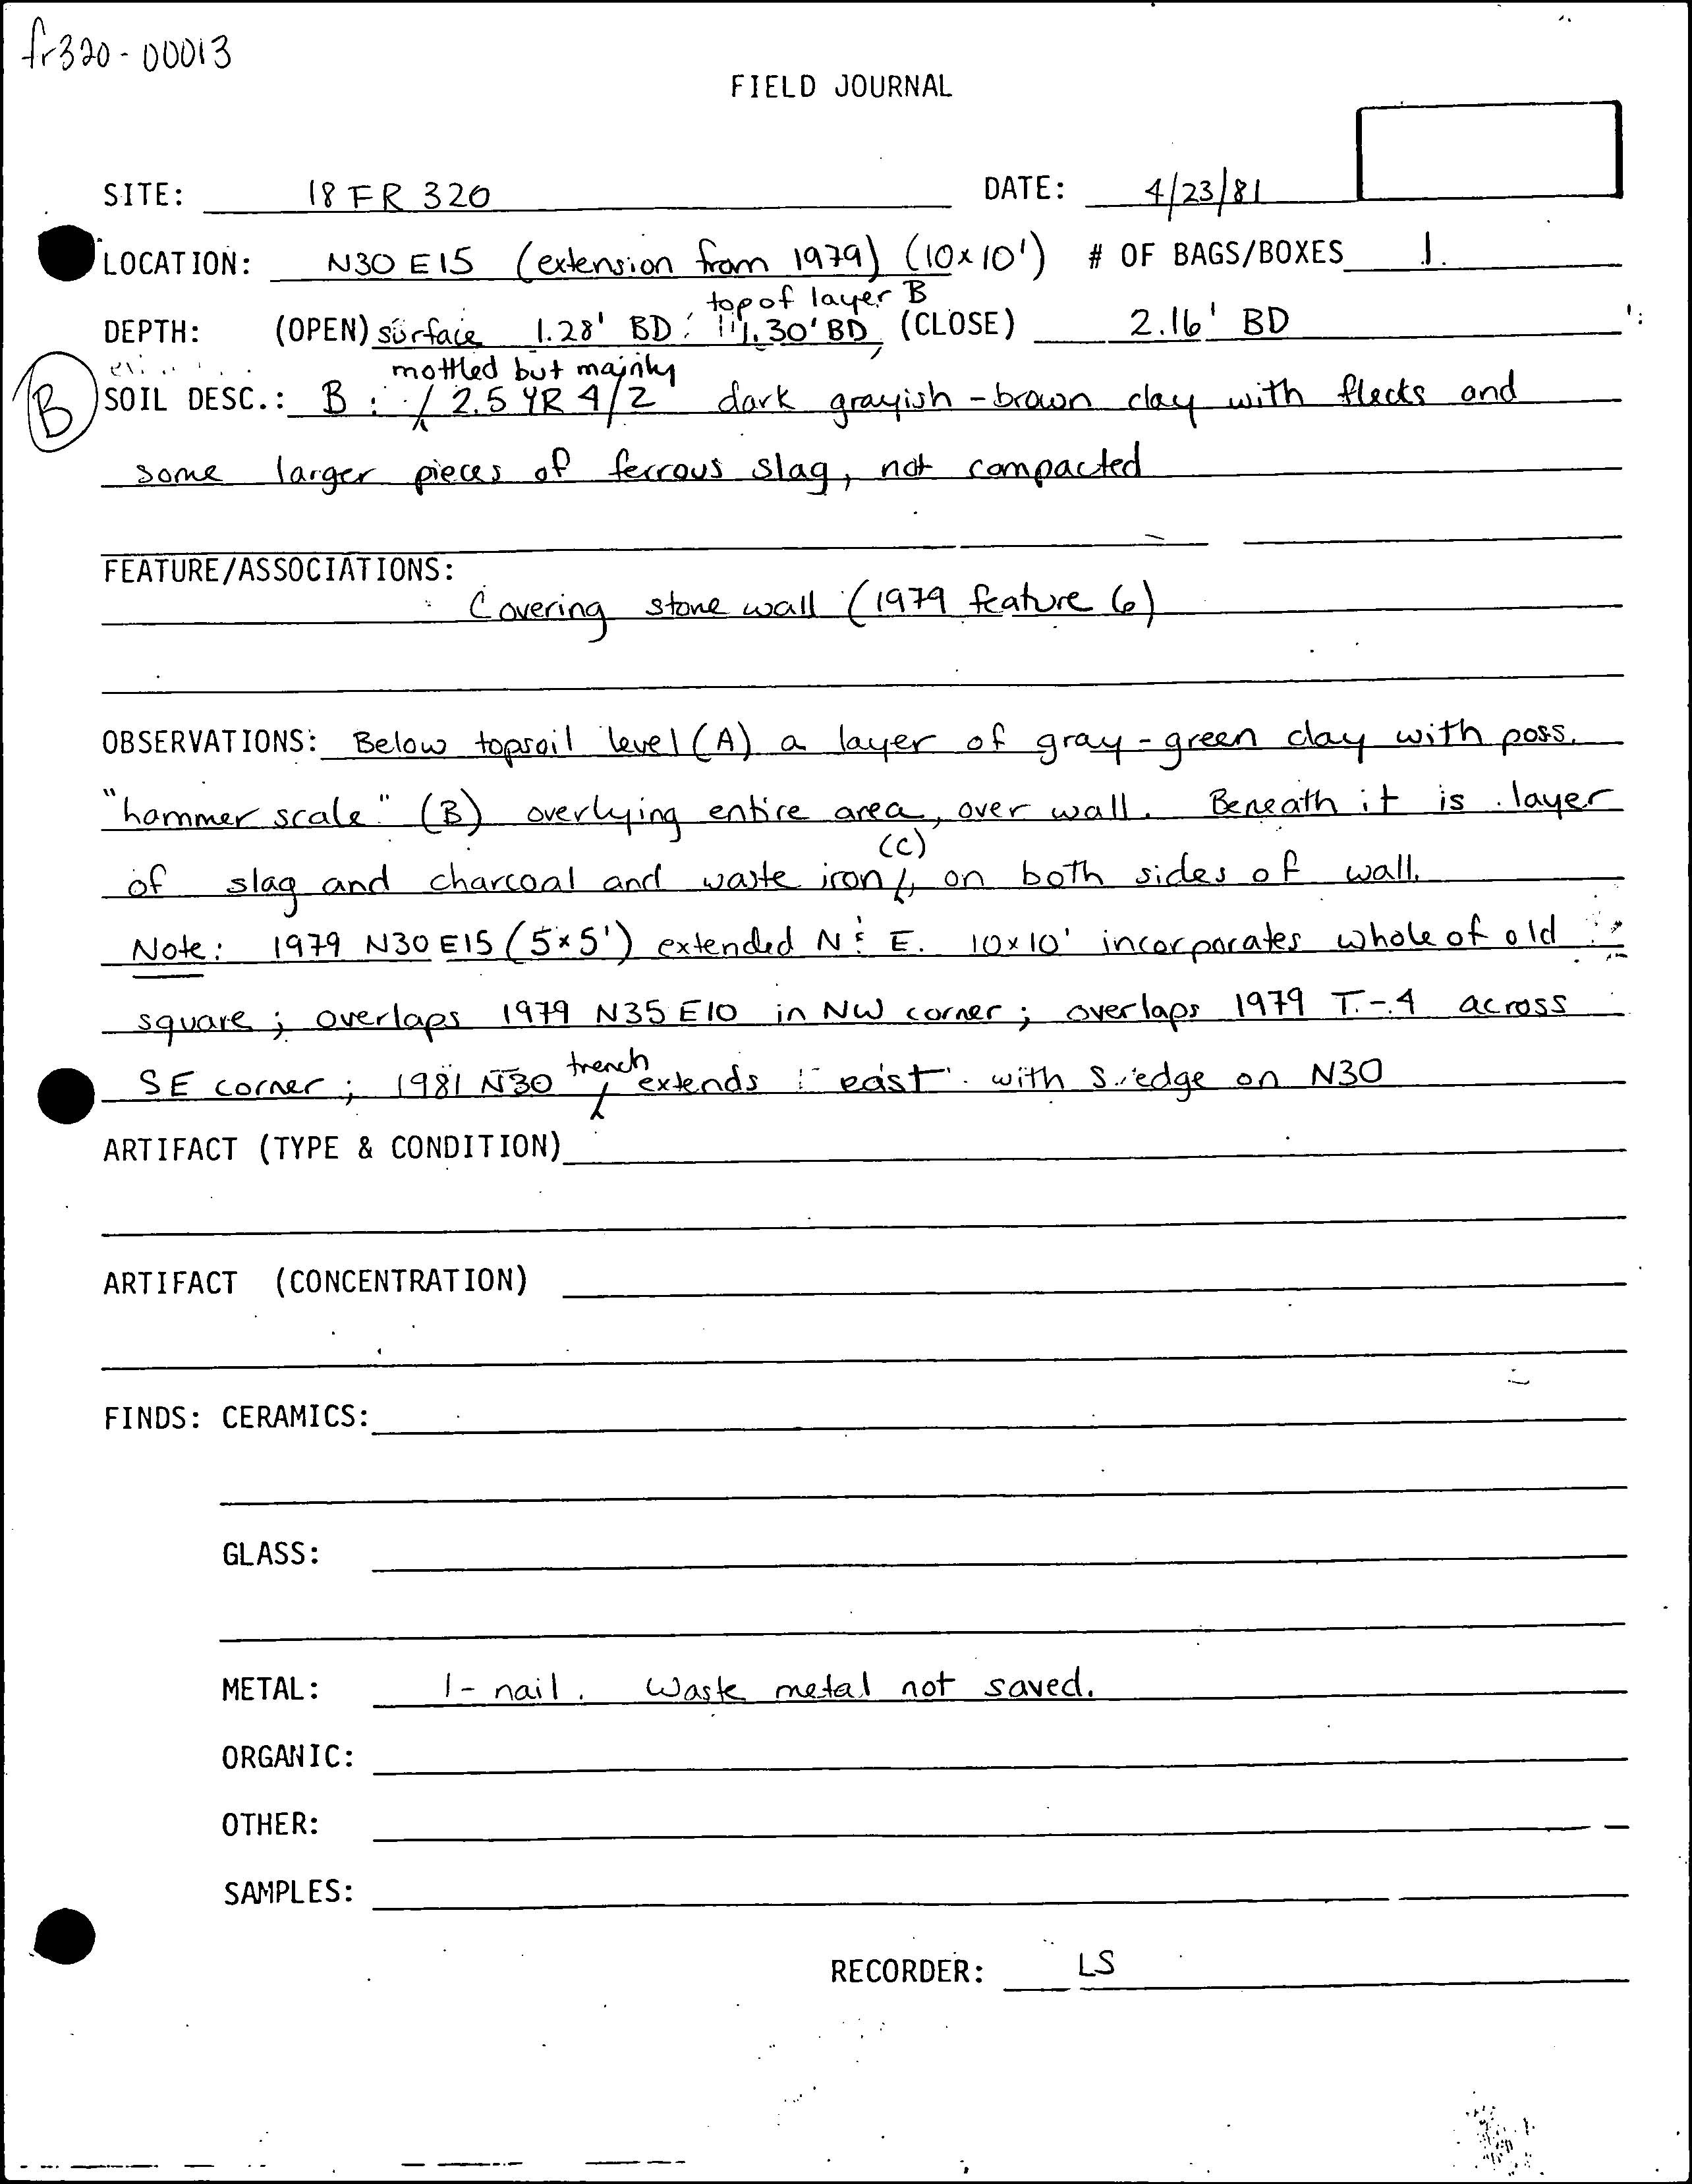 fr320-00013
FIELD JOURNAL
SITE: 18 FR 320 DATE: 4/23/81
LOCATION: N30 E15 (extension from 1979) (10x10') # OF BAGS/BOXES 1.
top of layer B
DEPTH: (OPEN) surface 1.28' BD; 1.30' BD, (CLOSE) 2.16' BD
mottled but mainly
B SOIL DESC.: B: 2.5 YR 4/2 dark grayish-brown clay with flecks and
some larger pieces of ferrous slag, not compacted
FEATURE/ASSOCIATIONS:
Covering stone wall (1979 feature 6)
OBSERVATIONS: Below topsoil level (A) a layer of gray-green clay with poss.
"hammer scale" (B) overlying entire area, over wall. Beneath it is layer
(C)
of slag and charcoal and waste iron, on both sides of wall.
Note: 1979 N30 E15 (5x5') extended N & E. 10x10' incorporates whole of old
square; overlaps 1979 N35 E10 in NW corner; overlaps 1979 T.-4 across
trench
SE corner; 1981 N30 extends east with S. edge on N30
ARTIFACT (TYPE & CONDITION)
ARTIFACT (CONCENTRATION)
FINDS: CERAMICS:
GLASS:
METAL: 1- nail. Waste metal not saved.
ORGANIC:
OTHER:
SAMPLES:
RECORDER: LS